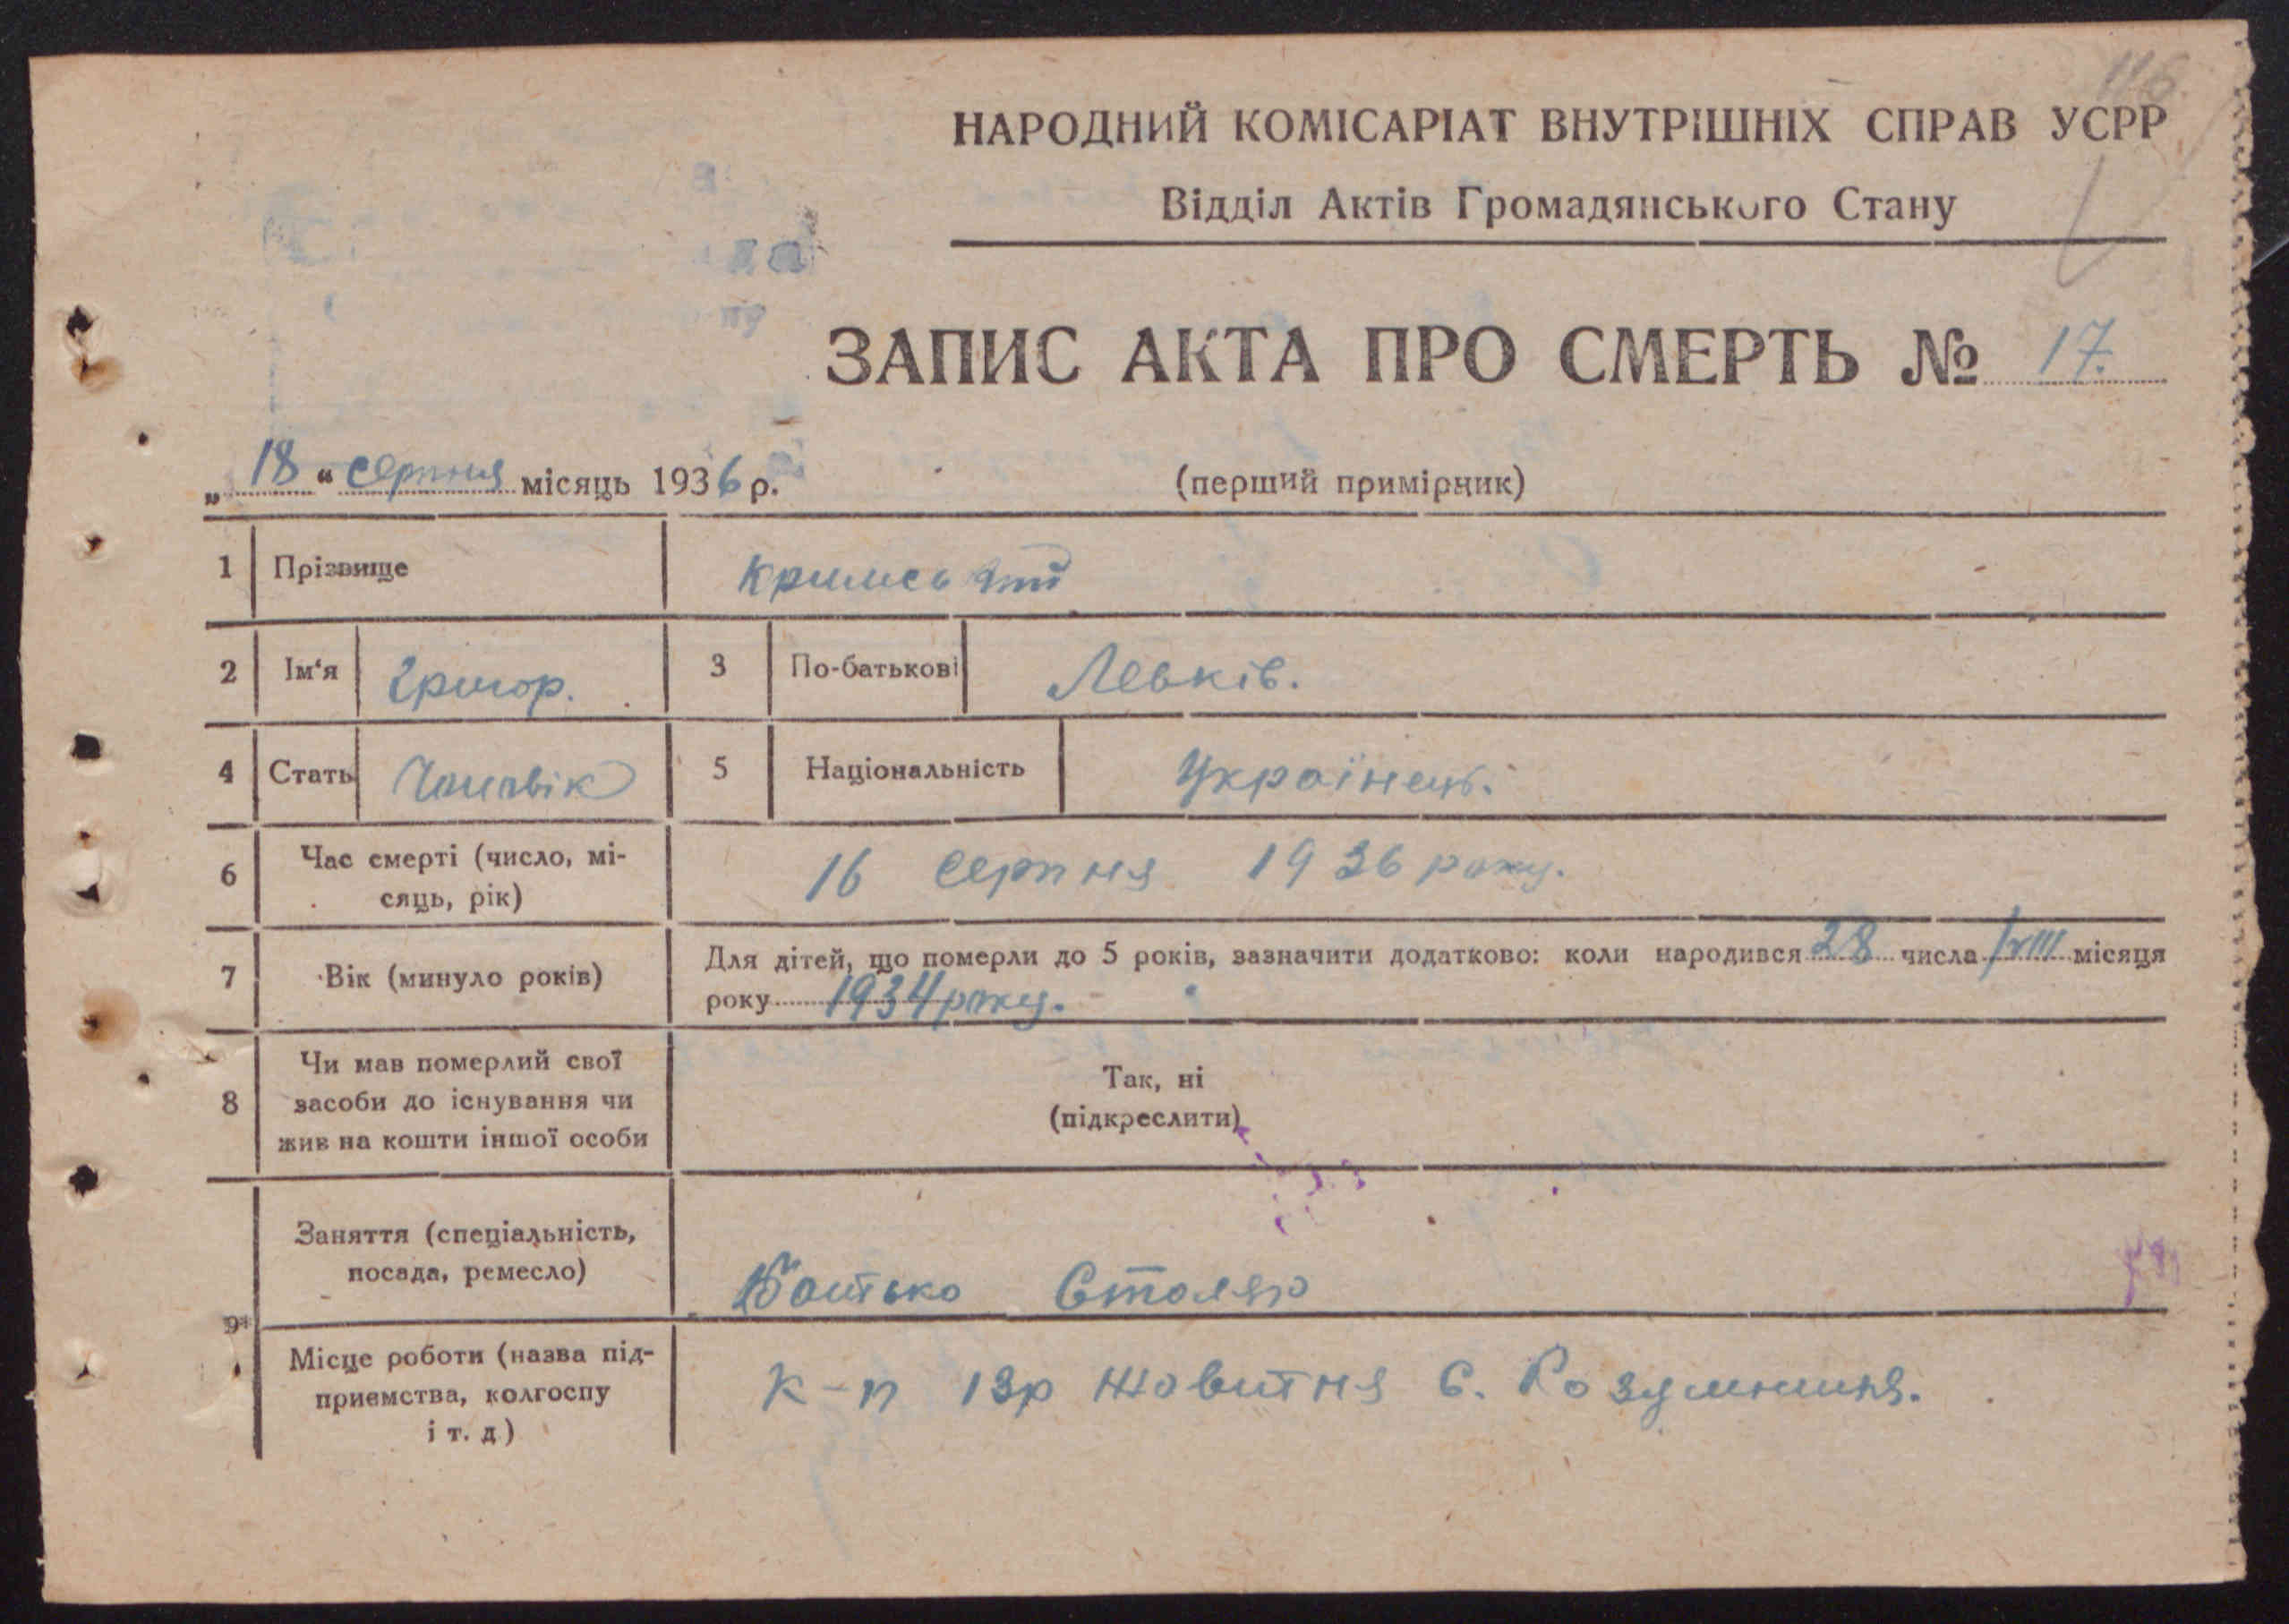 116.
НАРОДНИЙ КОМІСАРІАТ ВНУТРІШНІХ СПРАВ УСРР
Відділ Актів Громадянського Стану
ЗАПИС АКТА ПРО СМЕРТЬ № 17.
„18“ серпня місяць 1936 р. (перший примірник)
1 Прізвище Кримський
2 Ім‘я Григор. 3 По-батькові Левків.
4 Стать Чоловік 5 Національність Українець.
6 Час смерті (число, мі-
сяць, рік) 16 серпня 1936 року.
7 Вік (минуло років) Для дітей, що померли до 5 років, зазначити додатково: коли народився 28 числа /VIII місяця
року 1934 року.
8 Чи мав померлий свої
засоби до існування чи
жив на кошти іншої особи
Так, ні
(підкреслити)
9 Заняття (спеціальність,
посада, ремесло) Батько Столяр
Місце роботи (назва під-
приємства, колгоспу
і т. д.) К-п 13р Жовитня С. Розумниця.